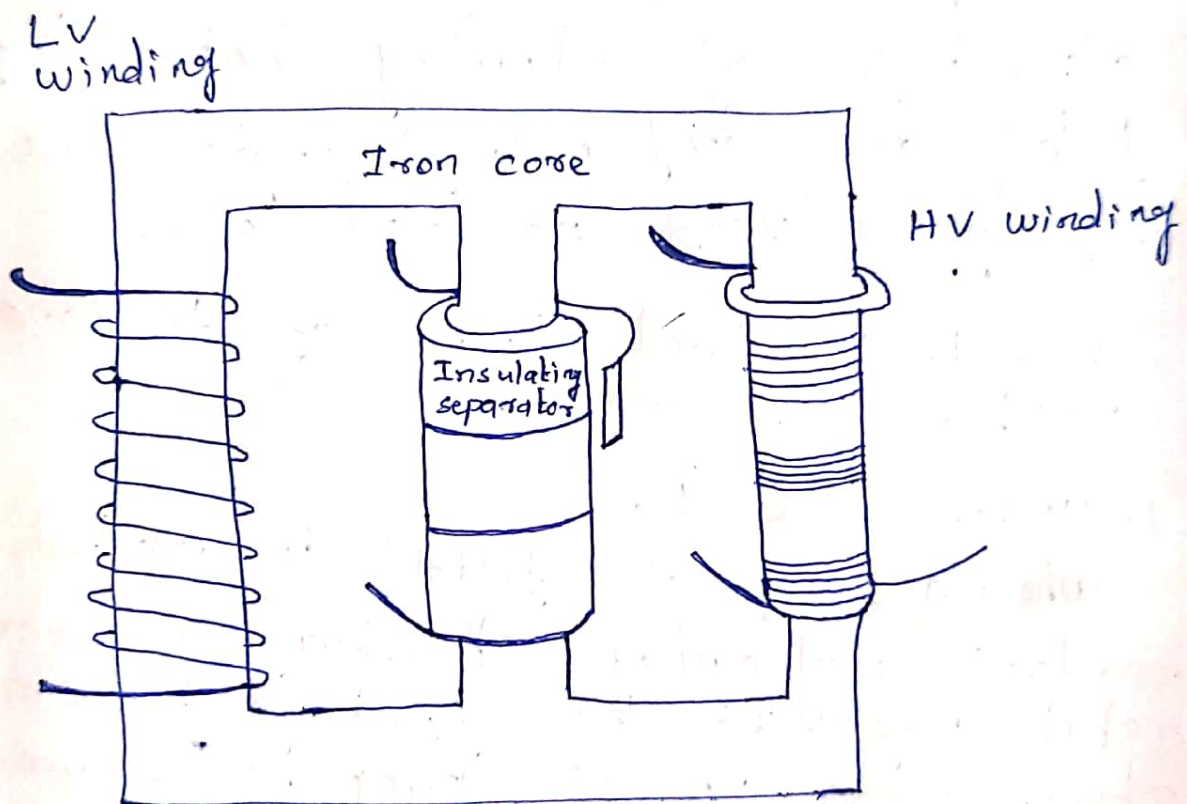 LV
winding
Iron core
HV winding
Insulating
separator